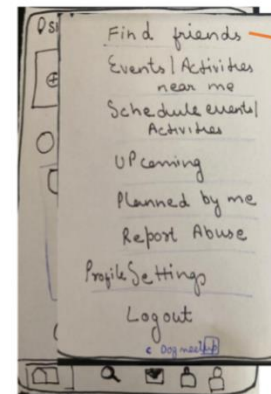 Find friends
Events/Activities
near me
Schedule events/
Activities
Upcoming
Planned by me
Report Abuse
Profile Settings
Logout